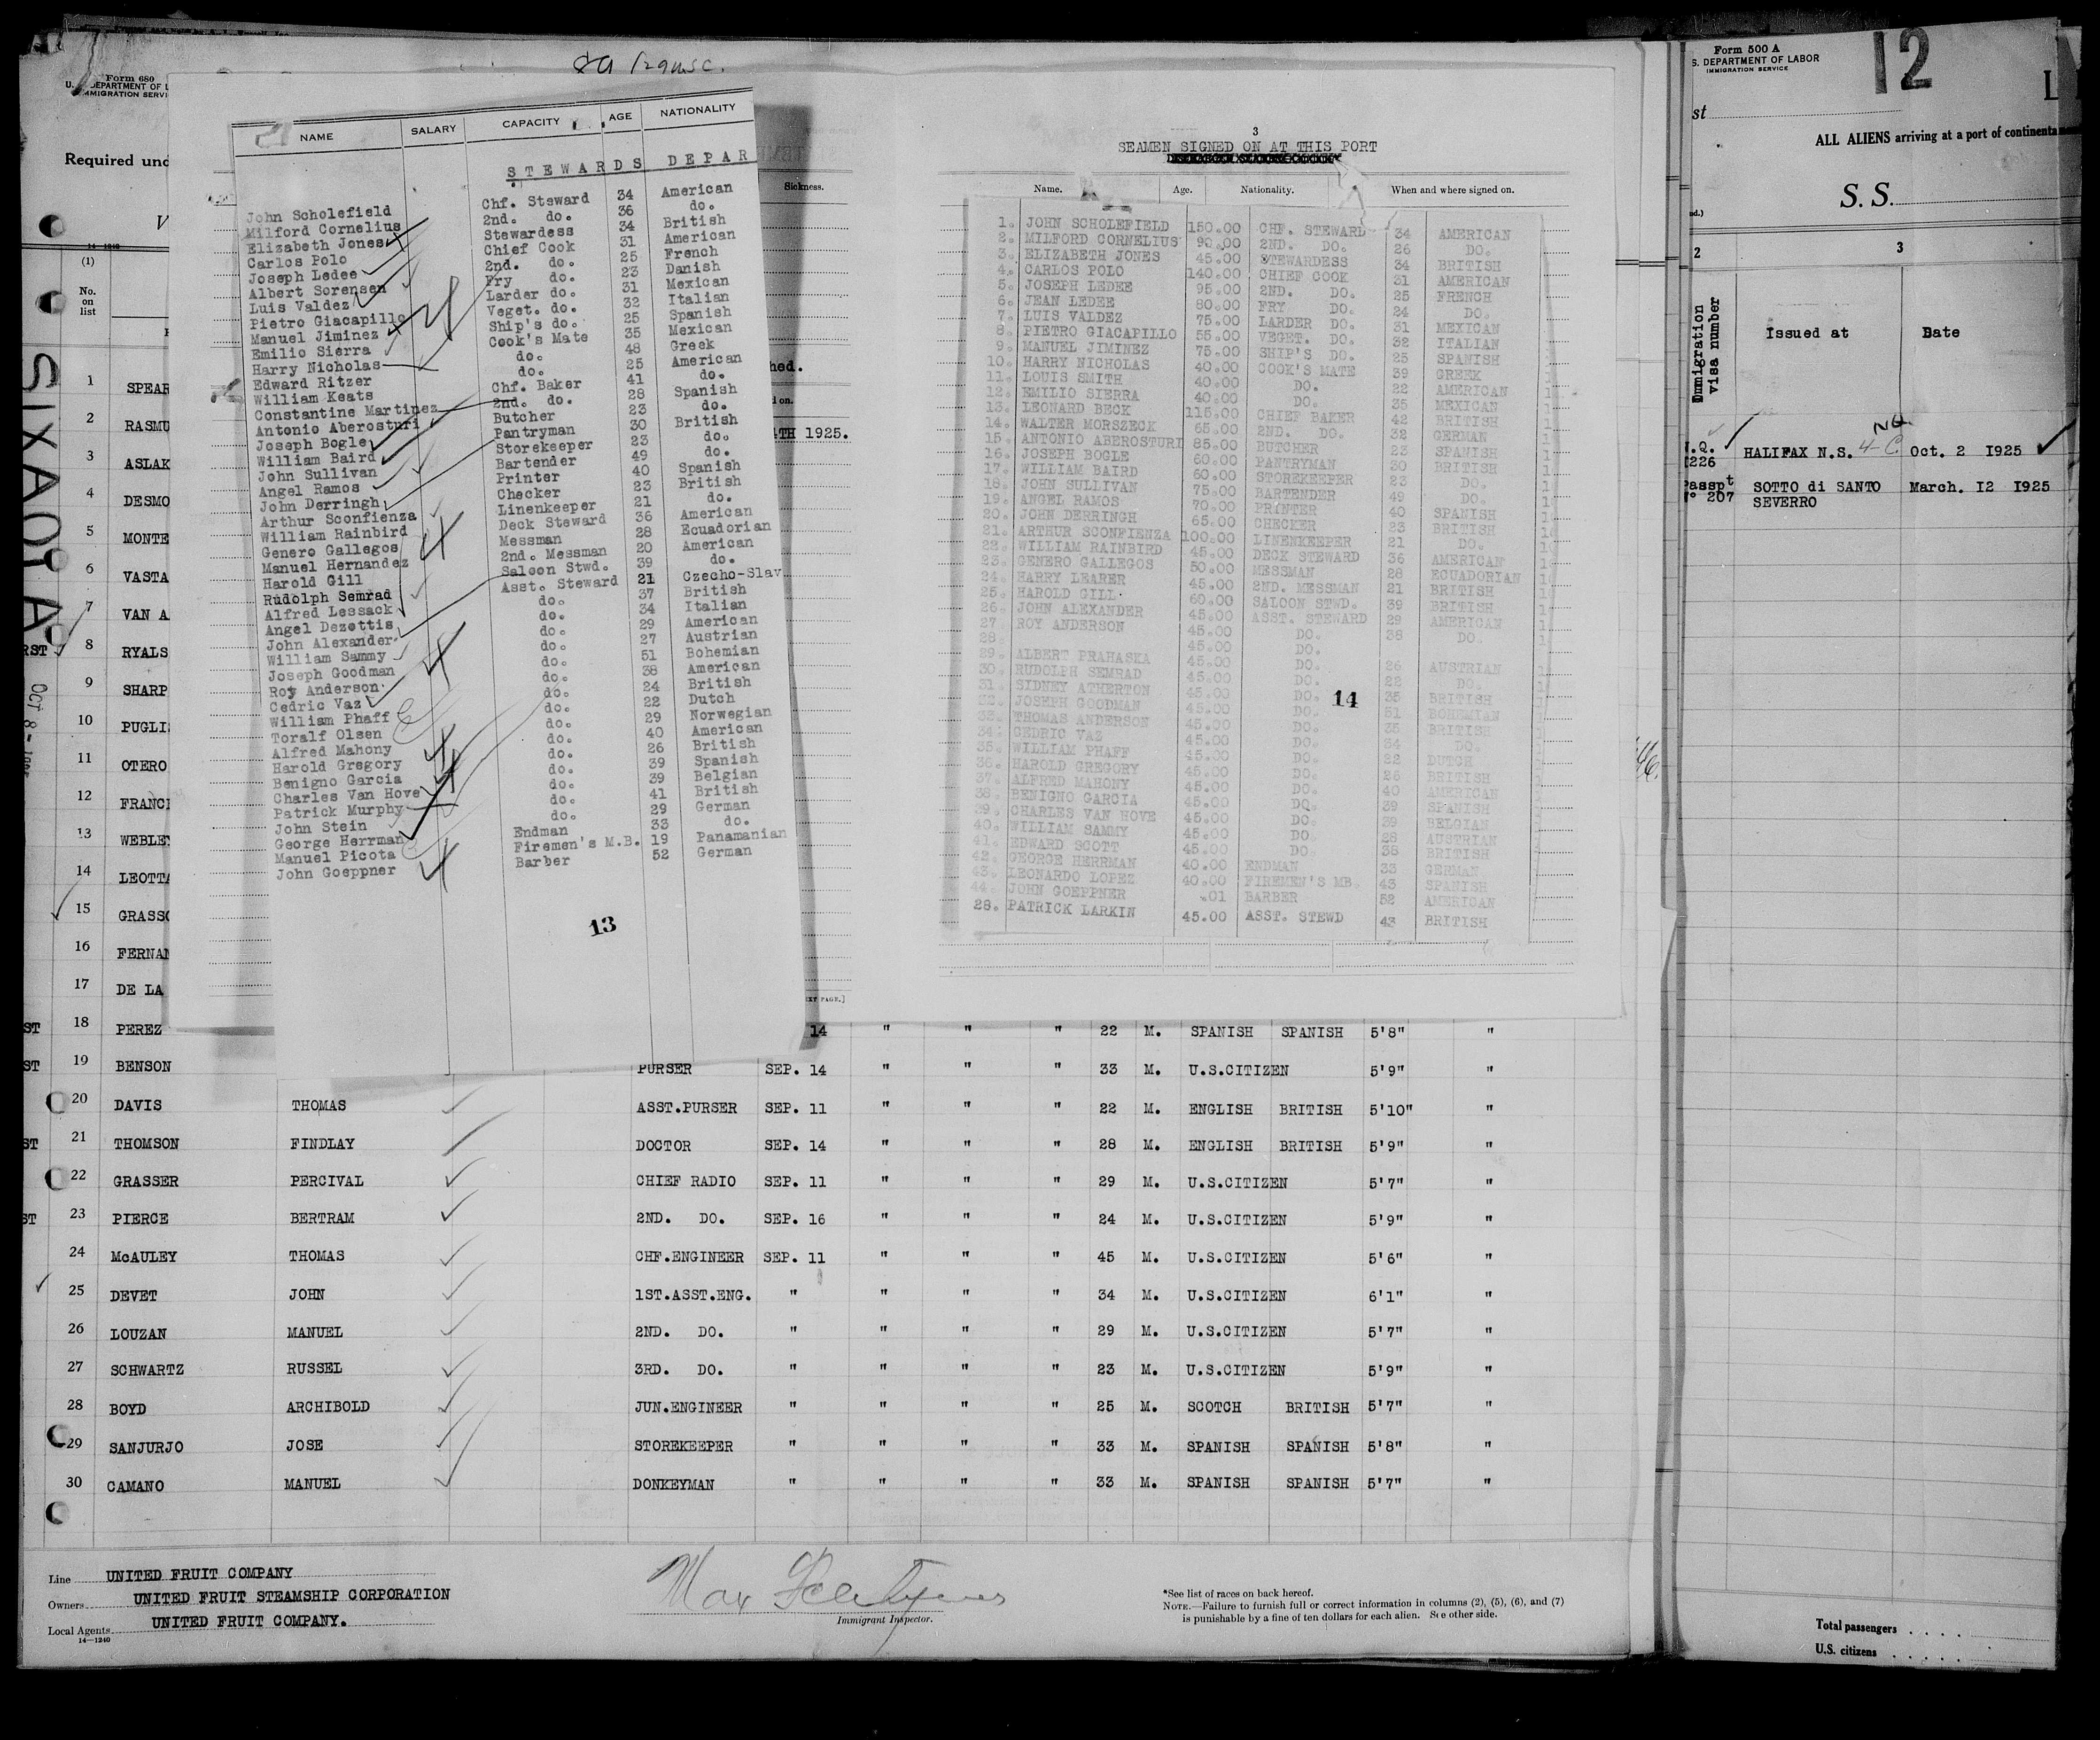 Form 680
U. S. DEPARTMENT OF L
IMMIGRATION SERVI
Required und
V
14-1240
(1)
No.
on
list
SIXAOLA
OCT 8-
1 SPEAR
2 RASMU
3 ASLAK
4 DESMO
5 MONTE
6 VASTA
7 VAN A
8 RYALS
9 SHARP
10 PUGLI
11 OTERO
12 FRANC
13 WEBLE
14 LEOTTA
15 GRASSO
16 FERNAN
17 DE LA
NAME SALARY CAPACITY AGE NATIONALITY
STEWARDS DEPAR
John Scholefield Chf. Steward 34 American
Milford Cornelius 2nd. do. 36 do.
Elizabeth Jones Stewardess 34 British
Carlos Polo Chief Cook 31 American
Joseph Ledee 2nd. do. 25 French
Albert Sorensen Fry do. 23 Danish
Luis Valdez Larder do. 31 Mexican
Pietro Giacapillo Veget. do. 32 Italian
Manuel Jiminez Ship's do. 25 Spanish
Emilio Sierra Cook's Mate 35 Mexican
Harry Nicholas do. 48 Greek
Edward Ritzer do. 25 American
William Keats Chf. Baker 41 do.
Constantine Martinez 2nd. do. 28 Spanish
Antonio Aberosturi Butcher 23 do.
Joseph Bogle Pantryman 30 British
William Baird Storekeeper 23 do.
John Sullivan Bartender 49 do.
Angel Ramos Printer 40 Spanish
John Derringh Checker 23 British
Arthur Sconfienza Linenkeeper 21 do.
William Rainbird Deck Steward 36 American
Genero Gallegos Messman 28 Ecuadorian
Manuel Hernandez 2nd. Messman 20 American
Harold Gill Saloon Stwd. 39 do.
Rudolph Semrad Asst. Steward 21 Czecho-Slav.
Alfred Lessack do. 37 British
Angel Dezettis do. 34 Italian
John Alexander do. 29 American
William Sammy do. 27 Austrian
Joseph Goodman do. 51 Bohemian
Roy Anderson do. 38 American
Cedric Vaz do. 24 British
William Phaff do. 22 Dutch
Toralf Olsen do. 29 Norwegian
Alfred Mahony do. 40 American
Harold Gregory do. 26 British
Benigno Garcia do. 39 Spanish
Charles Van Hove do. 39 Belgian
Patrick Murphy do. 41 British
John Stein do. 29 German
George Herrman Endman 33 do.
Manuel Picota Firemen's M.B. 19 Panamanian
John Goeppner Barber 52 German
13
Sickness.
hed.
TH 1925.
EXT PAGE.]
3
SEAMEN SIGNED ON AT THIS PORT
Name. Age. Nationality. When and where signed on.
1. JOHN SCHOLEFIELD 150.00 CHF. STEWARD 34 AMERICAN
2. MILFORD CORNELIUS 90.00 2ND. DO. 26 DO.
3. ELIZABETH JONES 45.00 STEWARDESS 34 BRITISH
4. CARLOS POLO 140.00 CHIEF COOK 31 AMERICAN
5. JOSEPH LEDEE 95.00 2ND. DO. 25 FRENCH
6. JEAN LEDEE 80.00 FRY DO. 24 DO.
7. LUIS VALDEZ 75.00 LARDER DO. 31 MEXICAN
8. PIETRO GIACAPILLO 55.00 VEGET. DO. 32 ITALIAN
9. MANUEL JIMINEZ 75.00 SHIP'S DO. 25 SPANISH
10. HARRY NICHOLAS 40.00 COOK'S MATE 39 GREEK
11. LOUIS SMITH 40.00 DO. 22 AMERICAN
12. EMILIO SIERRA 40.00 DO. 35 MEXICAN
13. LEONARD BECK 115.00 CHIEF BAKER 42 BRITISH
14. WALTER MORSZECK 65.00 2ND. DO. 32 GERMAN
15. ANTONIO ABEROSTURI 85.00 BUTCHER 23 SPANISH
16. JOSEPH BOGLE 60.00 PANTRYMAN 30 BRITISH
17. WILLIAM BAIRD 60.00 STOREKEEPER 23 DO.
18. JOHN SULLIVAN 75.00 BARTENDER 49 DO.
19. ANGEL RAMOS 70.00 PRINTER 40 SPANISH
20. JOHN DERRINGH 65.00 CHECKER 23 BRITISH
21. ARTHUR SCONFIENZA 100.00 LINENKEEPER 21 DO.
22. WILLIAM RAINBIRD 45.00 DECK STEWARD 36 AMERICAN
23. GENERO GALLEGOS 50.00 MESSMAN 28 ECUADORIAN
24. HARRY LEARER 45.00 2ND. MESSMAN 21 BRITISH
25. HAROLD GILL 60.00 SALOON STWD. 39 BRITISH
26. JOHN ALEXANDER 45.00 ASST. STEWARD 29 AMERICAN
27 ROY ANDERSON 45.00 DO. 38 DO.
28. 45.00 DO.
29. ALBERT PRAHASKA 45.00 DO. 26 AUSTRIAN
30. RUDOLPH SEMRAD 45.00 DO. 22 DO.
31. SIDNEY ATHERTON 45.00 DO. 35 BRITISH
32. JOSEPH GOODMAN 45.00 DO. 51 BOHEMIAN
33. THOMAS ANDERSON 45.00 DO. 35 BRITISH
34. CEDRIC VAZ 45.00 DO. 34 DO.
35. WILLIAM PHAFF 45.00 DO. 22 DUTCH
36. HAROLD GREGORY 45.00 DO. 26 BRITISH
37. ALFRED MAHONY 45.00 DO. 40 AMERICAN
38. BENIGNO GARCIA 45.00 DO. 39 SPANISH
39. CHARLES VAN HOVE 45.00 DO. 39 BELGIAN
40. WILLIAM SAMMY 45.00 DO. 28 AUSTRIAN
41. EDWARD SCOTT 45.00 DO. 38 BRITISH
42. GEORGE HERRMAN 40.00 ENDMAN 33 GERMAN
43. LEONARDO LOPEZ 40.00 FIREMEN'S MB. 43 SPANISH
44. JOHN GOEPPNER .01 BARBER 52 AMERICAN
28. PATRICK LARKIN 45.00 ASST. STEWD 43 BRITISH
14
ST 18 PEREZ 14 " " " 22 M. SPANISH SPANISH 5'8" "
ST 19 BENSON PURSER SEP. 14 " " " 33 M. U.S.CITIZEN 5'9" "
20 DAVIS THOMAS ASST.PURSER SEP. 11 " " " 22 M. ENGLISH BRITISH 5'10" "
ST 21 THOMSON FINDLAY DOCTOR SEP. 14 " " " 28 M. ENGLISH BRITISH 5'9" "
22 GRASSER PERCIVAL CHIEF RADIO SEP. 11 " " " 29 M. U.S.CITIZEN 5'7" "
ST 23 PIERCE BERTRAM 2ND. DO. SEP. 16 " " " 24 M. U.S.CITIZEN 5'9" "
24 McAULEY THOMAS CHF.ENGINEER SEP. 11 " " " 45 M. U.S.CITIZEN 5'6" "
25 DEVET JOHN 1ST.ASST.ENG. " " " " 34 M. U.S.CITIZEN 6'1" "
26 LOUZAN MANUEL 2ND. DO. " " " " 29 M. U.S.CITIZEN 5'7" "
27 SCHWARTZ RUSSEL 3RD. DO. " " " " 23 M. U.S.CITIZEN 5'9" "
28 BOYD ARCHIBOLD JUN.ENGINEER " " " " 25 M. SCOTCH BRITISH 5'7" "
29 SANJURJO JOSE STOREKEEPER " " " " 33 M. SPANISH SPANISH 5'8" "
30 CAMANO MANUEL DONKEYMAN " " " " 33 M. SPANISH SPANISH 5'7" "
Line UNITED FRUIT COMPANY
Owners UNITED FRUIT STEAMSHIP CORPORATION
Local Agents UNITED FRUIT COMPANY.
14-1240
Max
Immigrant Inspector.
*See list of races on back hereof.
NOTE.—Failure to furnish full or correct information in columns (2), (5), (6), and (7)
is punishable by a fine of ten dollars for each alien. See other side.
Form 500 A
S. DEPARTMENT OF LABOR
IMMIGRATION SERVICE
12
L
st
ALL ALIENS arriving at a port of continenta
S. S.
2 3
Immigration visa number
Issued at Date
N.Q. 226 HALIFAX N.S. 4-C. Oct. 2 1925
Passpt N° 207 SOTTO di SANTO SEVERRO March. 12 1925
Total passengers
U.S. citizens